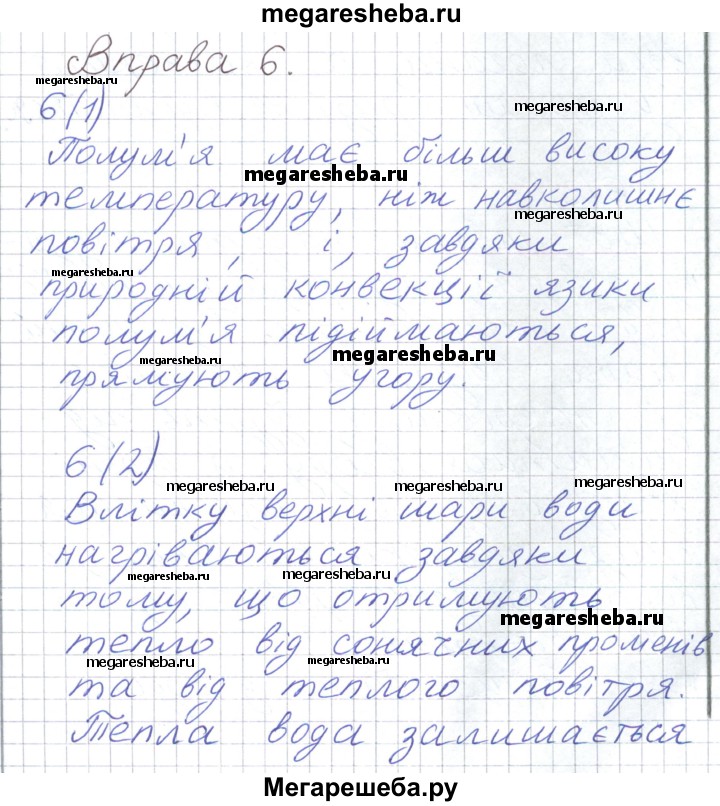 megaresheba.ru
Вправа 6.
megaresheba.ru
6(1)
megaresheba.ru
Полум'я має більш високу
megaresheba.ru
температуру, ніж навколишнє
megaresheba.ru
повітря, і, завдяки
megaresheba.ru
природній конвекції язики
полум'я підіймаються,
megaresheba.ru
megaresheba.ru
прямують угору.
6(2)
megaresheba.ru
megaresheba.ru
megaresheba.ru
Влітку верхні шари води
нагріваються завдяки
megaresheba.ru
megaresheba.ru
тому, що отримують
megaresheba.ru
тепло від сонячних променів
megaresheba.ru
megaresheba.ru
та від теплого повітря.
Тепла вода залишається
Мегарешеба.ру